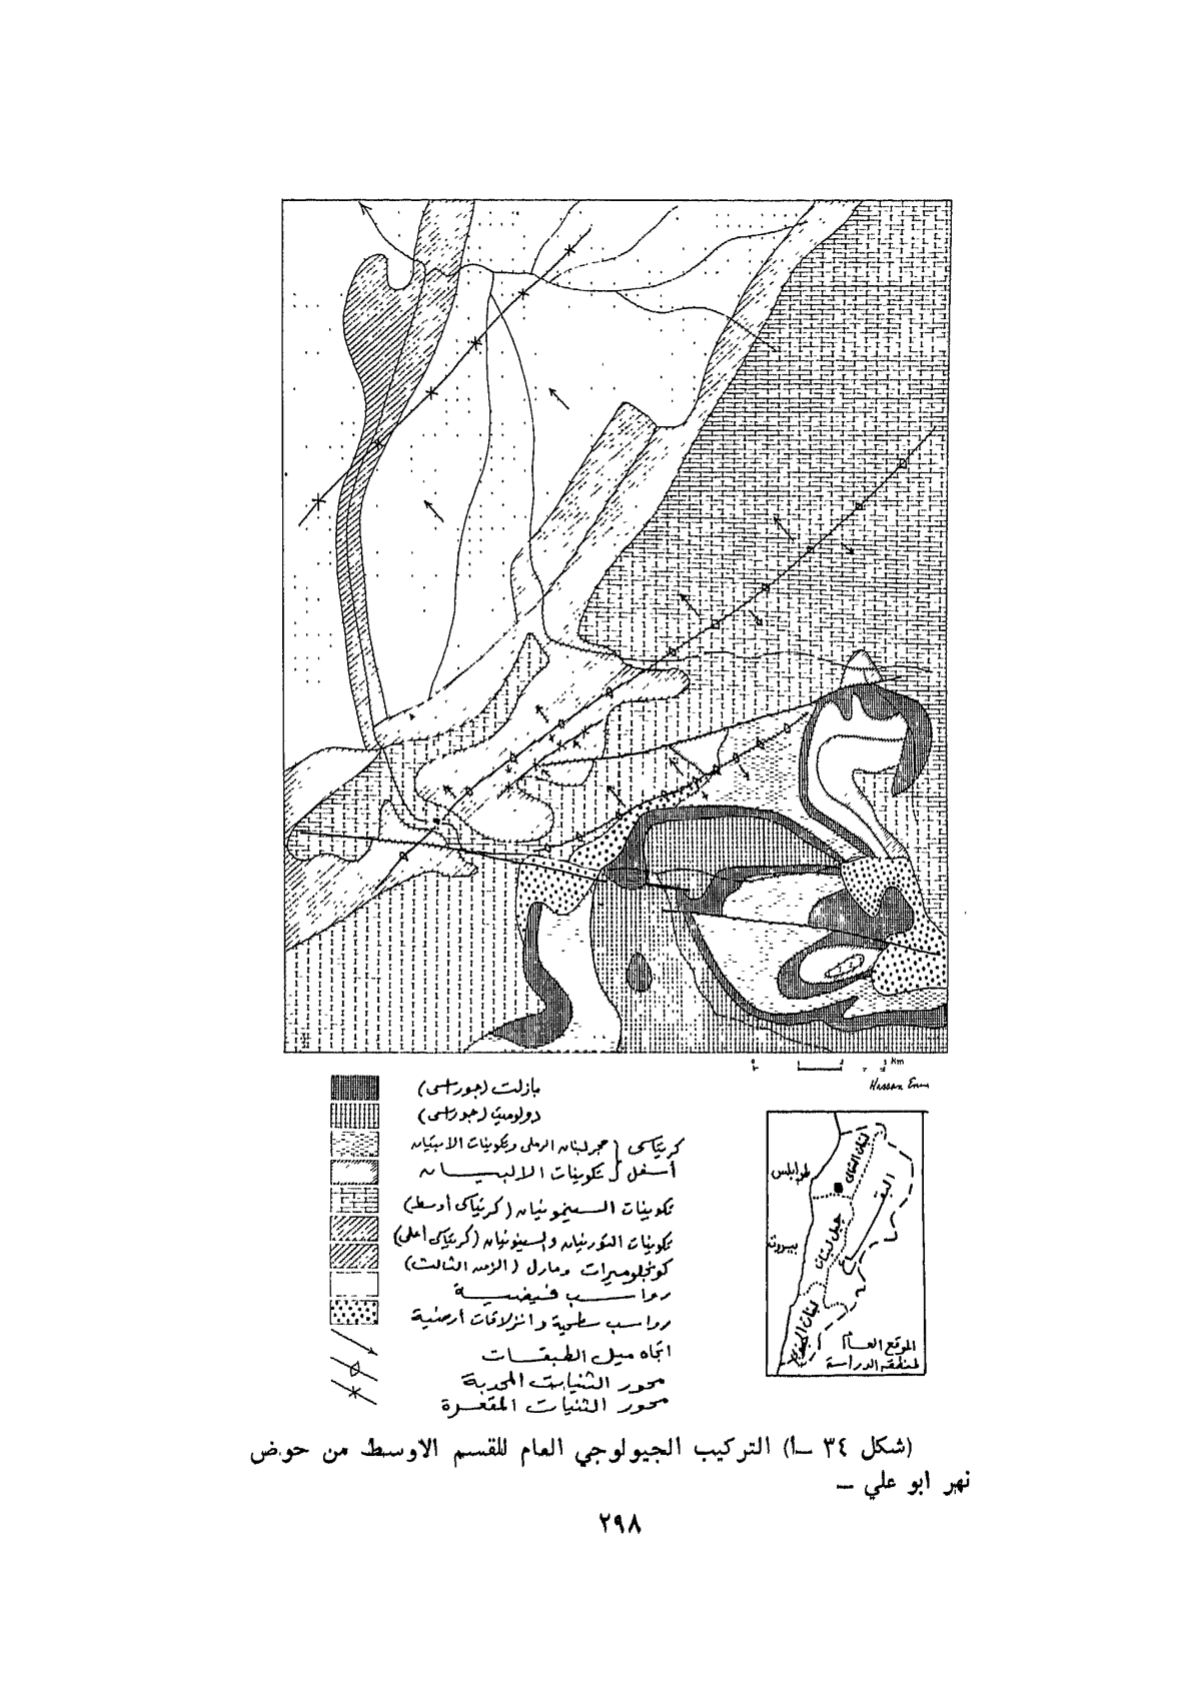 Km
بازلت (جوراسى)
دولوميت (جوراسى)
كريتاسى أسفل { حجر لبنان الرملى وتكوينات الابتيان
تكوينات الالبيان
تكوينات السينومونيان (كريتاكى أوسط)
تكوينات التورنيان والسينونيان (كريتاكى أعلى)
كونجلوميرات ومارل (الزمن الثالث)
رواسب فيضية
رواسب سطحية وانزلاقات أرضية
اتجاه ميل الطبقات
محور الثنيات المحدبة
محور الثنيات المقعرة
طرابلس
بيروت
جبل لبنان
لبنان
الموقع العام
لمنطقة الدراسة
(شكل ٣٤ ــأ) التركيب الجيولوجي العام للقسم الاوسط من حوض
نهر ابو علي ــ
٢٩٨